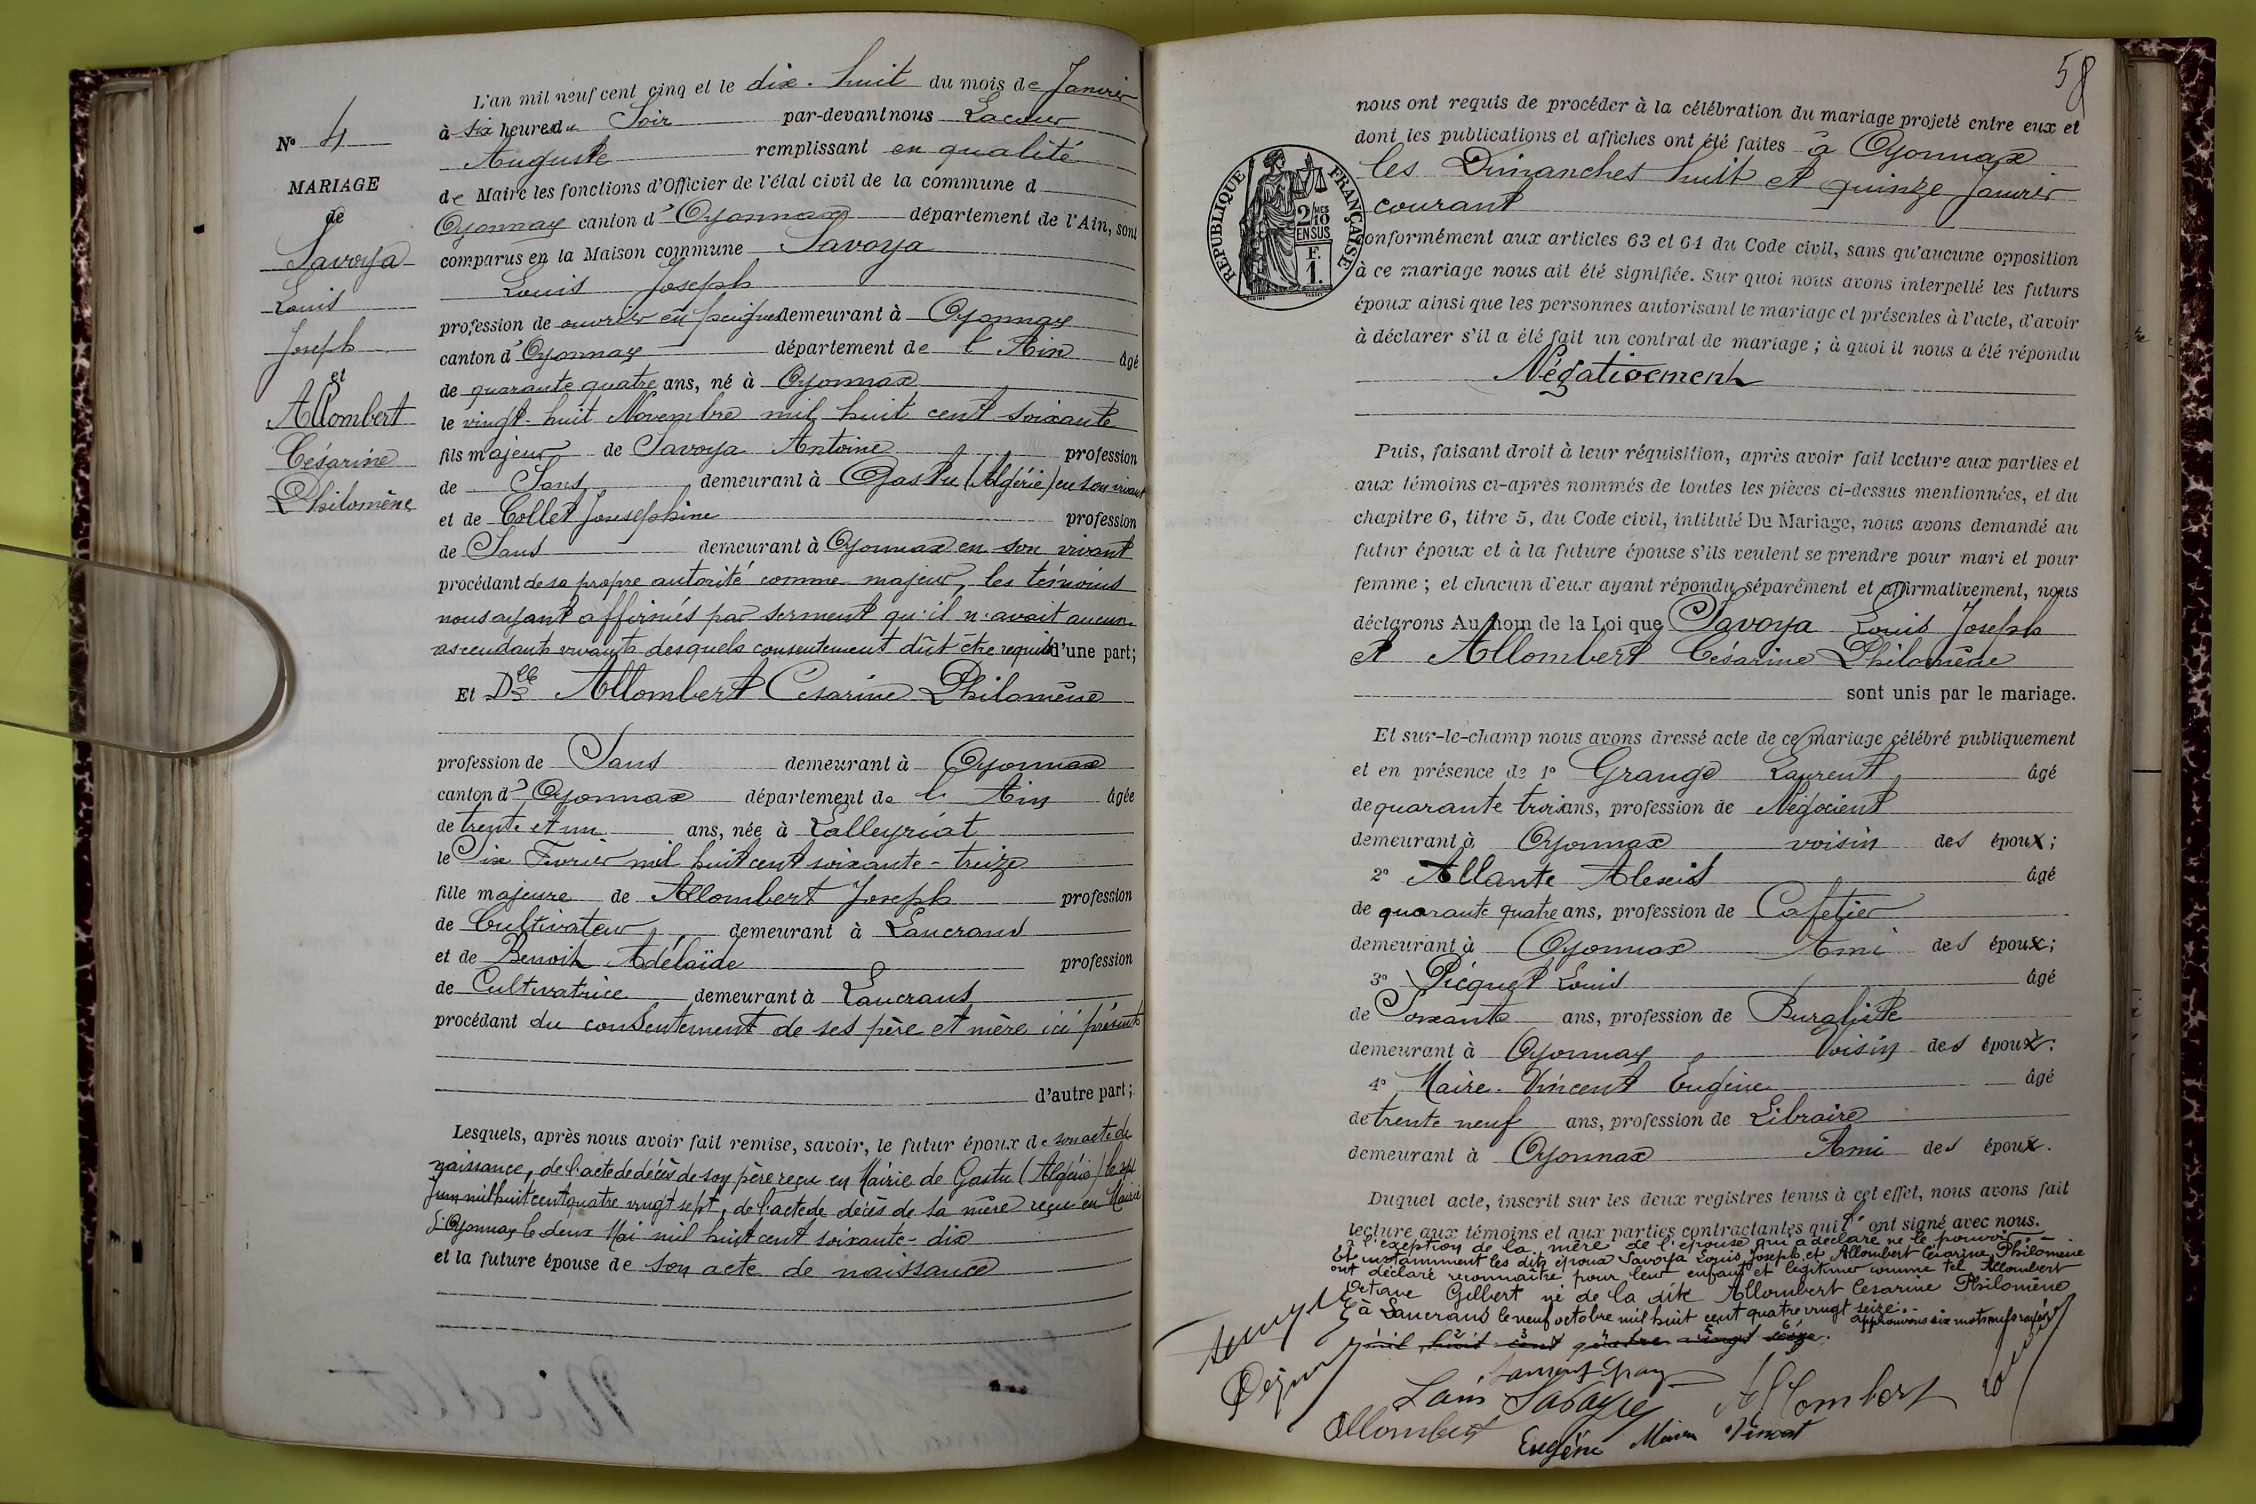 L'an mil neuf cent cinq et le dix-huit du mois de Janvier
à six heures du Soir par-devant nous Lacour
Auguste remplissant en qualité
de Maire les fonctions d'Officier de l'état civil de la commune d
Oyonnax canton d'Oyonnax département de l'Ain, sont
comparus en la Maison commune Savoya
Louis Joseph
profession de ouvrier en peignes demeurant à Oyonnax
canton d'Oyonnax département de l'Ain âgé
de quarante quatre ans, né à Oyonnax
le vingt-huit Novembre mil huit cent soixante
fils majeur de Savoya Antoine profession
de Sans demeurant à Gastu (Algérie) en son vivant
et de Collet Josesephine profession
de Sans demeurant à Oyonnax en son vivant
procédant de sa propre autorité comme majeur, les témoins
nous ayant affirmés par serment qu'il n'avait aucun
ascendants vivants desquels consentement dût être requis d'une part;
Et Dlle Allombert Cesarine Philomène
profession de Sans demeurant à Oyonnax
canton d'Oyonnax département de l'Ain âgée
de trente et un ans, née à Lalleyriat
le Six Fevrier mil huit cent soixante-treize
fille majeure de Allombert Joseph profession
de Cultivateur demeurant à Lancrans
et de Benoit Adélaïde profession
de Cultivatrice demeurant à Lancrans
procédant du consentement de ses père et mère ici présents
d'autre part;
Lesquels, après nous avoir fait remise, savoir, le futur époux de son acte de
naissance, de l'acte de décès de son père reçu en Mairie de Gastu (Algérie) le sept
Juin mil huit cent quatre vingt sept, de l'acte de décès de sa mère reçu en Mairie
d'Oyonnax le deux Mai mil huit cent soixante-dix
et la future épouse de son acte de naissance
No 4
MARIAGE
de
Savoya
Louis
Joseph
et
Allombert
Césarine
Philomène
58
nous ont requis de procéder à la célébration du mariage projeté entre eux et
dont les publications et affiches ont été faites à Oyonnax
les Dimanches huit et quinze Janvier
courant
conformément aux articles 63 et 64 du Code civil, sans qu'aucune opposition
à ce mariage nous ait été signifiée. Sur quoi nous avons interpellé les futurs
époux ainsi que les personnes autorisant le mariage et présentes à l'acte, d'avoir
à déclarer s'il a été fait un contrat de mariage ; à quoi il nous a été répondu
Négativement
RÉPUBLIQUE FRANÇAISE
2/10 MES
EN SUS
F.
1.
Puis, faisant droit à leur réquisition, après avoir fait lecture aux parties et
aux témoins ci-après nommés de toutes les pièces ci-dessus mentionnées, et du
chapitre 6, titre 5, du Code civil, intitulé Du Mariage, nous avons demandé au
futur époux et à la future épouse s'ils veulent se prendre pour mari et pour
femme ; et chacun d'eux ayant répondu séparément et affirmativement, nous
déclarons Au nom de la Loi que Savoya Louis Joseph
et Allombert Césarine Philomène
sont unis par le mariage.
Et sur-le-champ nous avons dressé acte de ce mariage célébré publiquement
et en présence de 1o Grange Laurent âgé
de quarante trois ans, profession de Négocient
demeurant à Oyonnax voisin des époux;
2o Allante Alexis âgé
de quarante quatre ans, profession de Cafetier
demeurant à Oyonnax Ami des époux;
3o Picquet Louis âgé
de Soixante ans, profession de Buraliste
demeurant à Oyonnax Voisin des époux.
4o Maire-Vincent Eugène âgé
de trente neuf ans, profession de Libraire
demeurant à Oyonnax Ami des époux.
Duquel acte, inscrit sur les deux registres tenus à cet effet, nous avons fait
lecture aux témoins et aux parties contractantes qui ont signé avec nous.
à l'exeption de la mère de l'épouse qui a déclaré ne le pouvoir.
Et instamment les dits époux Savoya Louis Joseph et Allombert Césarine Philomène
ont déclaré reconnaître pour leur enfant et légitimer comme tel Allombert
Octave Gilbert né de la dite Allombert Cesarine Philomène
à Lancrans le neuf octobre mil huit cent quatre vingt seize.
approuvons six mots nuls rayés
mil huit cent quatre vingt seize.
Laurent Grange
Louis Savoye
Allombert
Allombert
Eugène Maire Vincent